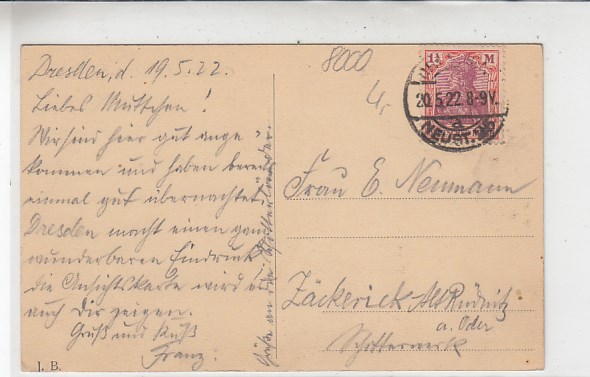 Dresden, d. 19.5.22.
Liebes Muttchen!
Wir sind hier gut ange-
kommen und haben bereits
einmal gut übernachtet.
Dresden macht einen ganz
wunderbaren Eindruck!
die Ansichtskarte wird es
auch Dir zeigen.
Gruß und Kuß
Franz.
Grüße an die
I. B.
8000
4,-
1¼ M
20.5.22.8-9V.
a
NEUST.
Frau E. Neumann
Zäckerick Alt Rüdnitz
a. Oder